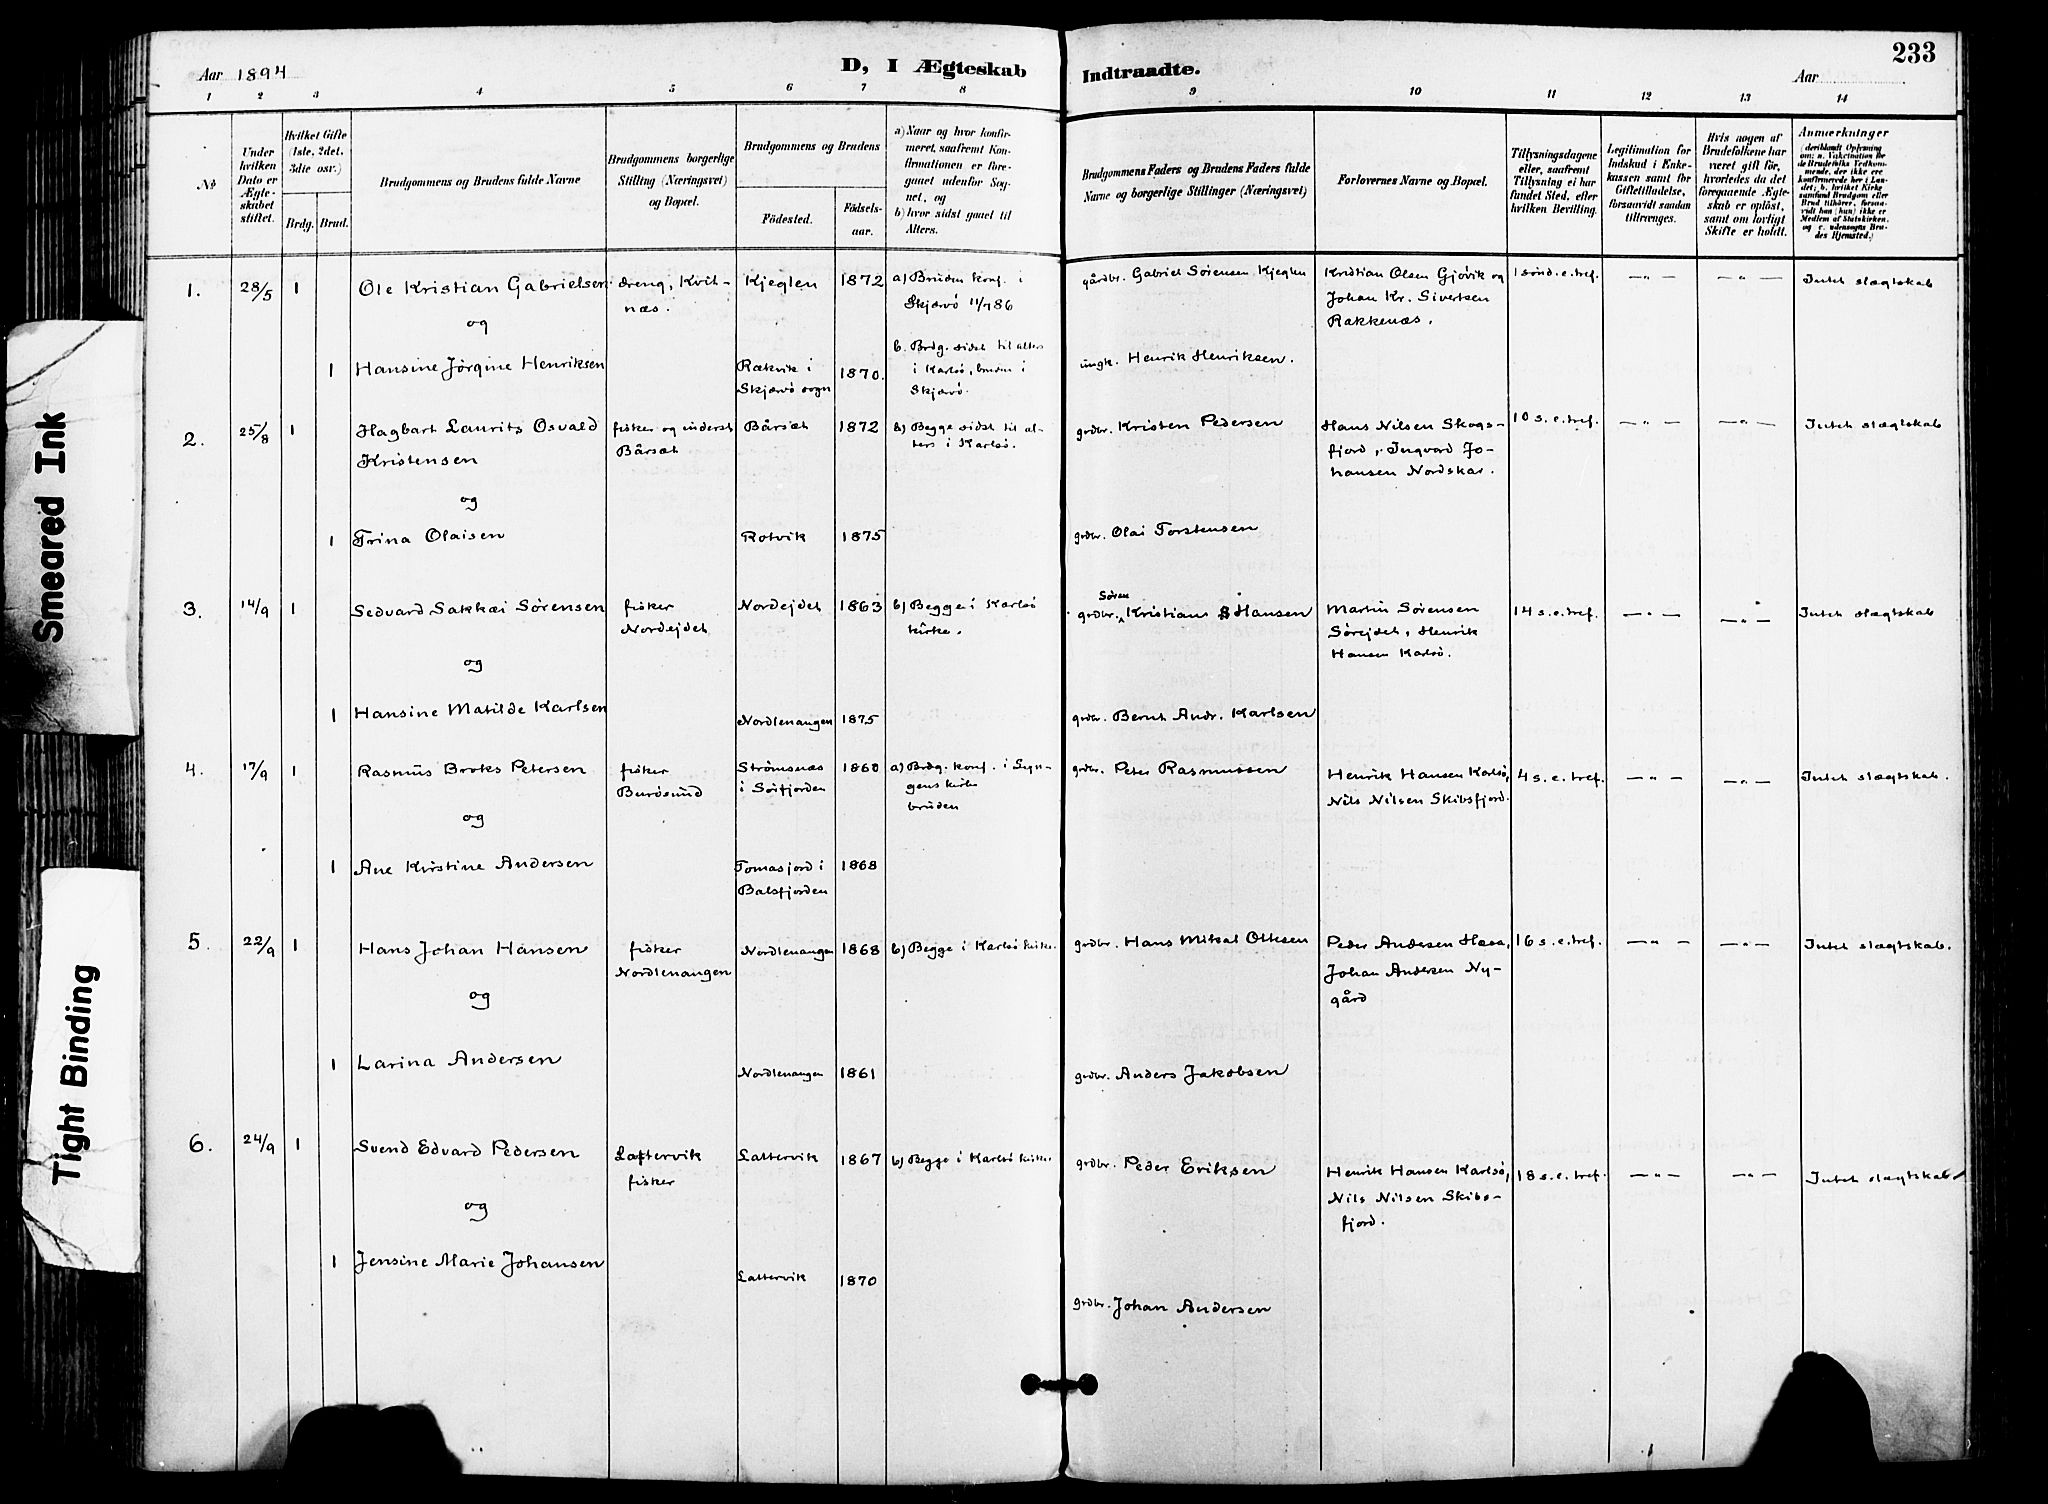 Smeared Ink
Tight Binding
Aar 1894
D, I Ægteskab
Indtraadte.
Aar
233
1 2 3 4 5 6 7 8
9 10 11 12 13 14
No
Under hvilken Dato er Ægteskabet stiftet.
Hvilket Gifte (1ste, 2det, 3die osv.)
Brdg. Brud.
Brudgommens og Brudens fulde Navne
Brudgommens borgerlige Stilling (Næringsvei) og Bopæl.
Brudgommens og Brudens
Födested.
Födsels-aar.
a) Naar og hvor konfir-
meret, saafremt Kon-
firmationen er fore-
gaaet udenfor Sog-
net, og
b) hvor sidst gaaet til
Alters.
Brudgommens Faders og Brudens Faders fulde
Navne og borgerlige Stillinger (Næringsvei)
Forlovernes Navne og Bopæl.
Tillysningsdagene
eller, saafremt
Tillysning ei har
fundet Sted, efter
hvilken Bevilling.
Legitimation for
Indskud i Enke-
kassen samt for
Giftetilladelse,
forsaavidt saadan
tiltrænges.
Hvis nogen af
Brudefolkene har
været gift för,
hvorledes da det
foregaaende Ægte-
skab er oplöst,
samt om lovligt
Skifte er holdt.
Anmærkninger
(deriblandt Oplysning
om: a. Vakcination for
de Brudefolks Vedkom-
mende, der ikke ere
konfirmerede her i Lan-
det; b. hvilket Kirke-
samfund Brudgom eller
Brud tilhörer, forsaa-
vidt han (hun) ikke er
Medlem af Statskirken,
og c. udensogns Bru-
des Hjemsted.)
1. 28/5 1 Ole Kristian Gabrielsen dreng, Kvit- Kjeglen 1872 a) Bruden konf. i gårdbr. Gabriel Sörensen Kjeglen Kristian Olsen Gjövik og 1 sönd. e. tref. — „ — — „ — Intet slægtskab
næs. Skjærvö 11/7 86 Johan Kr. Sivertsen
og Rakkenæs.
1 Hansine Jörgine Henriksen Rækvik i 1870. b. Brdg. sidst til alters ungk. Henrik Henriksen.
Skjærvö sogn i Karlsö, bruden i
Skjærvö.
2. 25/8 1 Hagbart Laurits Osvald fisker og inderst Bårsæt 1872 b) Begge sidst til al- grdbr. Kristen Pedersen Hans Nilsen Skogs- 10 s. e. tref. — „ — — „ — Intet slægtskab
Kristensen Bårsæt ters i Karlsö. fjord, Ingvard Jo-
og hansen Nordskar.
1 Trina Olaisen Rotvik 1875 grdbr. Olai Torstensen
3. 14/9 1 Sedvard Sakkæi Sørensen fisker Nordejdet 1863 b) Begge i Karlsö grdbr. Sören Kristians Hansen Martin Sörensen 14 s. e. tref. — „ — — „ — Intet slægtskab
Nordejdet kirke. Sörejdet, Henrik
og Hansen Karlsö.
1 Hansine Matilde Karlsen Nordlenangen 1875 grdbr. Bernt Andr. Karlsen
4. 17/9 1 Rasmus Broks Petersen fisker Strömsnæs 1860 a) Brdg. konf. i Lyn- grdbr. Peter Rasmussen Henrik Hansen Karlsö, 4 s. e. tref. — „ — — „ — Intet slægtskab.
Burösund i Sörfjorden gens kirke Nils Nilsen Skibsfjord.
og bruden
1 Ane Kirstine Andersen Tomasjord i 1868
Balsfjorden
5. 22/9 1 Hans Johan Hansen fisker Nordlenangen 1868 b) Begge i Karlsö kirke. grdbr. Hans Mikal Olksen Peder Andersen Hessa, 16 s. e. tref. — „ — — „ — Intet slægtskab.
Nordlenangen Johan Andersen Ny-
og gård
1 Larina Andersen Nordlenangen 1861 grdbr. Anders Jakobsen
6. 24/9 1 Svend Edvard Pedersen Lattervik Lattervik 1867 b) Begge i Karlsö kirke grdbr. Peder Eriksen Henrik Hansen Karlsö, 18 s. e. tref. — „ — — „ — Intet slægtskab
fisker Nils Nilsen Skibs-
og fjord.
1 Jensine Marie Johansen Lattervik 1870
grdbr. Johan Andersen